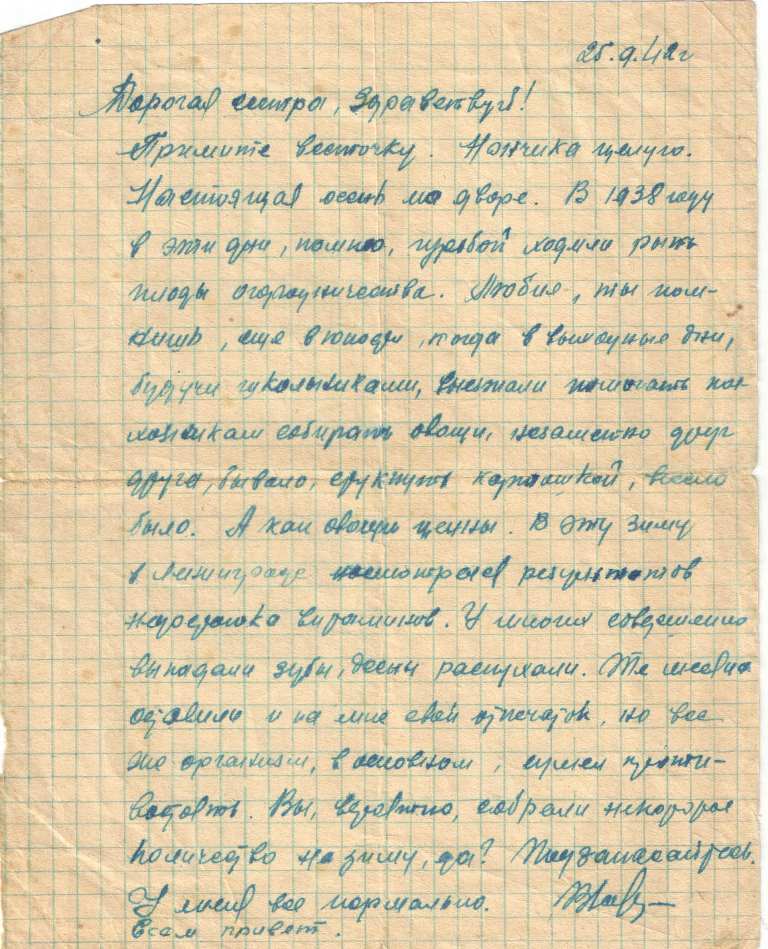 25.9.42 г
Дорогая сестра, здравствуй!
Примите весточку. целую.
Настоящая осень на дворе. В 1938 году
в эти дни, помню, гурьбой ходили рыть
плоды огородничества. Любия, ты пом-
нишь, еще в , когда в выходные дни,
будучи школьниками, выезжали помогать кол-
хозникам собирать овощи, незаметно друг
друга, бывало, стукнуть картошкой, весело
было. А как овощи ценны. В эту зиму
в Ленинграде насмотрелся результатов
недостатка витаминов. У многих совершенно
выпадали зубы, десны распухали. Те месяца
оставили и на мне свой отпечаток, но все
же организм, в основном, сумел проти-
востоять. Вы, вероятно, собрали некоторое
количество на зиму, да? Подзапасайтесь.
У меня все нормально.
Всем привет.